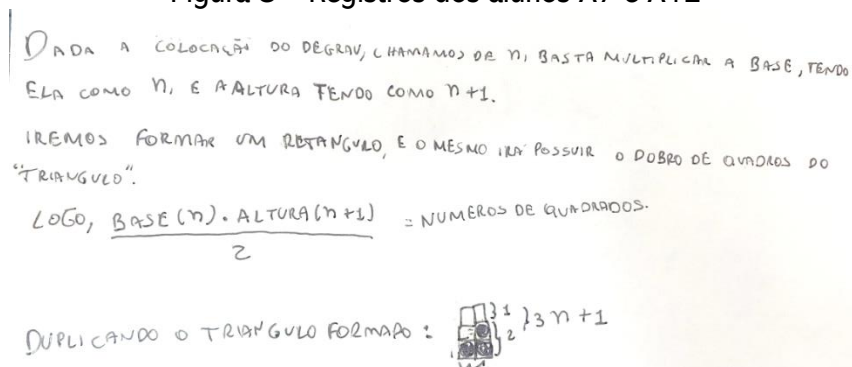 Figura 3 – Registros dos alunos A7 e A12
DADA A COLOCAÇÃO DO DEGRAU, CHAMAMOS DE n, BASTA MULTIPLICAR A BASE, TENDO
ELA COMO n, E A ALTURA TENDO COMO n+1.
IREMOS FORMAR UM RETANGULO, E O MESMO IRÁ POSSUIR O DOBRO DE QUADROS DO
"TRIANGULO".
LOGO, BASE (n). ALTURA (n+1) = NUMEROS DE QUADRADOS.
2
DUPLICANDO O TRIANGULO FORMADO: }1 }2 }3 n+1